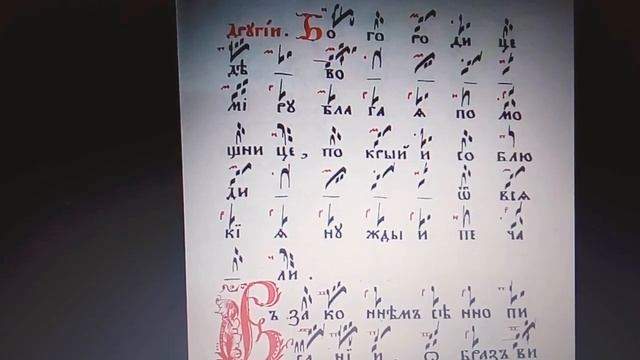 дрꙋгїи. Бо го ро ди це
дѣ — во — — — —
мі рꙋ бла га ѧ по мо
щни це, по крый и со блю
ди — — — — ѿ всѧ
кї ѧ нꙋ жды и пе ча
— ли.
Въ за ко ннѣмъ сѣ нно пи
са нї и ѡ бразъ ви